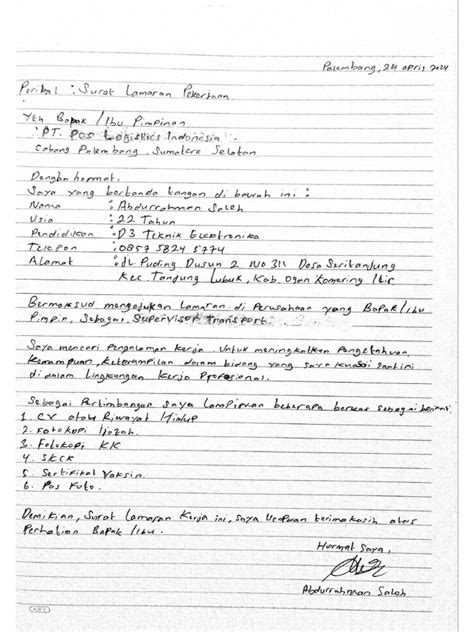 Palembang, 24 april 2024
Perihal : Surat Lamaran Pekerjaan
Yth Bapak / Ibu Pimpinan
PT. Pos Logistics Indonesia
Cabang Palembang Sumatera Selatan
Dengan hormat,
Saya yang bertanda tangan di bawah ini :
Nama : Abdurrahman Saleh
Usia : 22 Tahun
Pendidikan : D3 Teknik Elektronika
Telepon : 0857 5824 5774
Alamat : JL Puding Dusun 2 No 311 Desa Seritanjung
Kec Tanjung Lubuk, Kab. Ogan Komering Ilir
Bermaksud mengajukan Lamaran di Perusahaan yang Bapak/Ibu
Pimpin, Sebagai Supervisor Transport.
Saya mencari Pengalaman Kerja Untuk meningkatkan Pengetahuan,
Kemampuan, Keterampilan dalam bidang yang saya kuasai saat ini
di dalam Lingkungan Kerja Profesional.
Sebagai Pertimbangan saya Lampirkan beberapa berkas sebagai berikut
1. CV atau Riwayat Hidup
2. Fotokopi Ijazah.
3. Fotokopi KK
4. SKCK
5. Sertifikat Vaksin.
6. Pas Foto.
Demikian, Surat Lamaran Kerja ini, saya Ucapkan terimakasih atas
Perhatian Bapak / Ibu.
Hormat Saya,
Abdurrahman Saleh